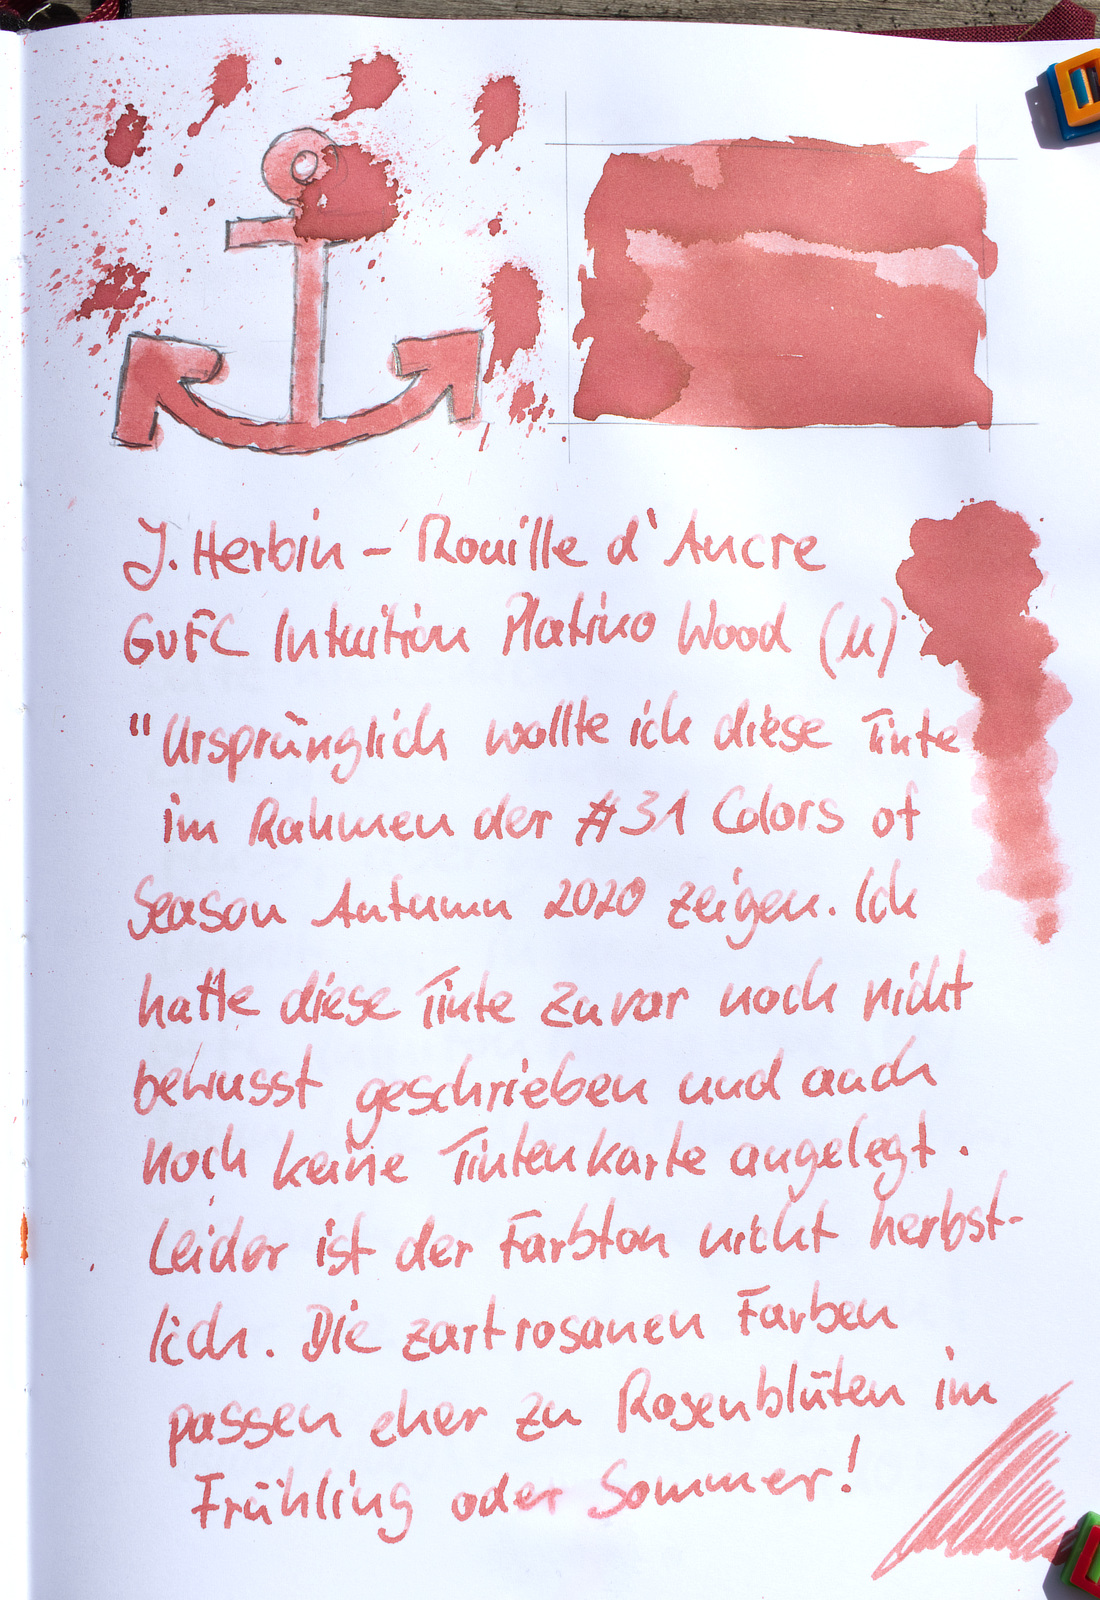 J. Herbin – Rouille d'Ancre
GvFC Intuition Platino Wood (M)
"Ursprünglich wollte ich diese Tinte
im Rahmen der #31 Colors of
Season Autumn 2020 zeigen. Ich
hatte diese Tinte zuvor noch nicht
bewusst geschrieben und auch
noch keine Tintenkarte angelegt.
Leider ist der Farbton nicht herbst-
lich. Die zartrosanen Farben
passen eher zu Rosenblüten im
Frühling oder Sommer!